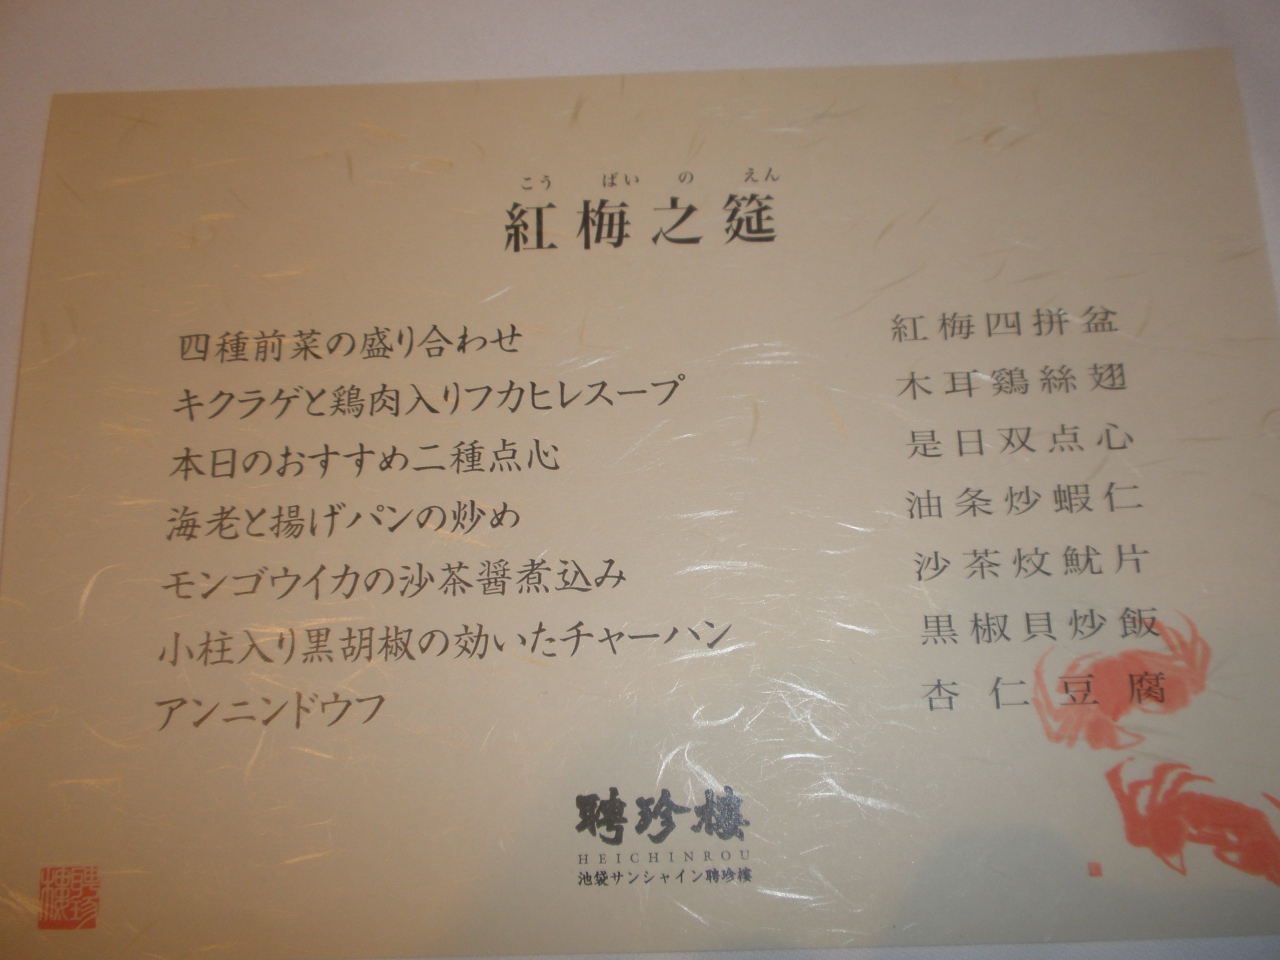 こう ばい の えん
紅梅之筵
四種前菜の盛り合わせ 紅梅四拼盆
キクラゲと鶏肉入りフカヒレスープ 木耳鷄絲翅
本日のおすすめ二種点心 是日双点心
海老と揚げパンの炒め 油条炒蝦仁
モンゴウイカの沙茶醤煮込み 沙茶炆魷片
小柱入り黒胡椒の効いたチャーハン 黒椒貝炒飯
アンニンドウフ 杏仁豆腐
聘珍樓
HEICHINROU
池袋サンシャイン聘珍樓
聘珍樓